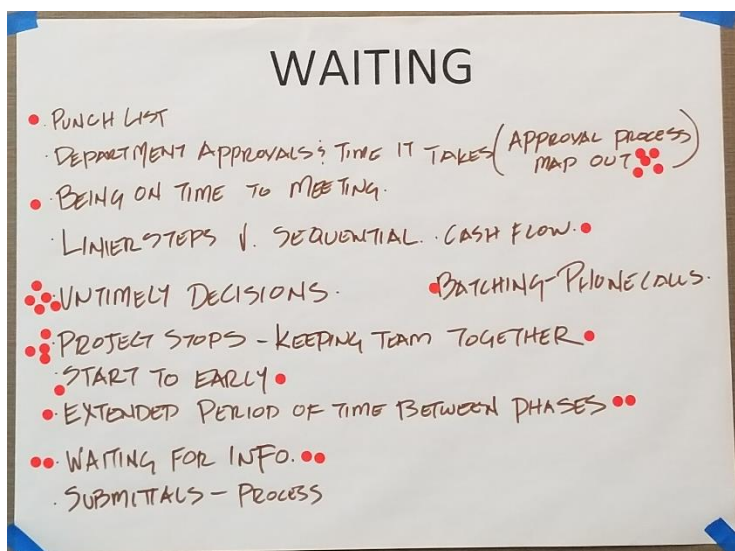 WAITING
PUNCH LIST
DEPARTMENT APPROVALS & TIME IT TAKES (APPROVAL PROCESS
MAP OUT)
BEING ON TIME TO MEETING.
LINIER STEPS V. SEQUENTIAL. CASH FLOW.
UNTIMELY DECISIONS. BATCHING-PHONE CALLS.
PROJECT STOPS - KEEPING TEAM TOGETHER
START TO EARLY
EXTENDED PERIOD OF TIME BETWEEN PHASES
WAITING FOR INFO.
SUBMITTALS - PROCESS